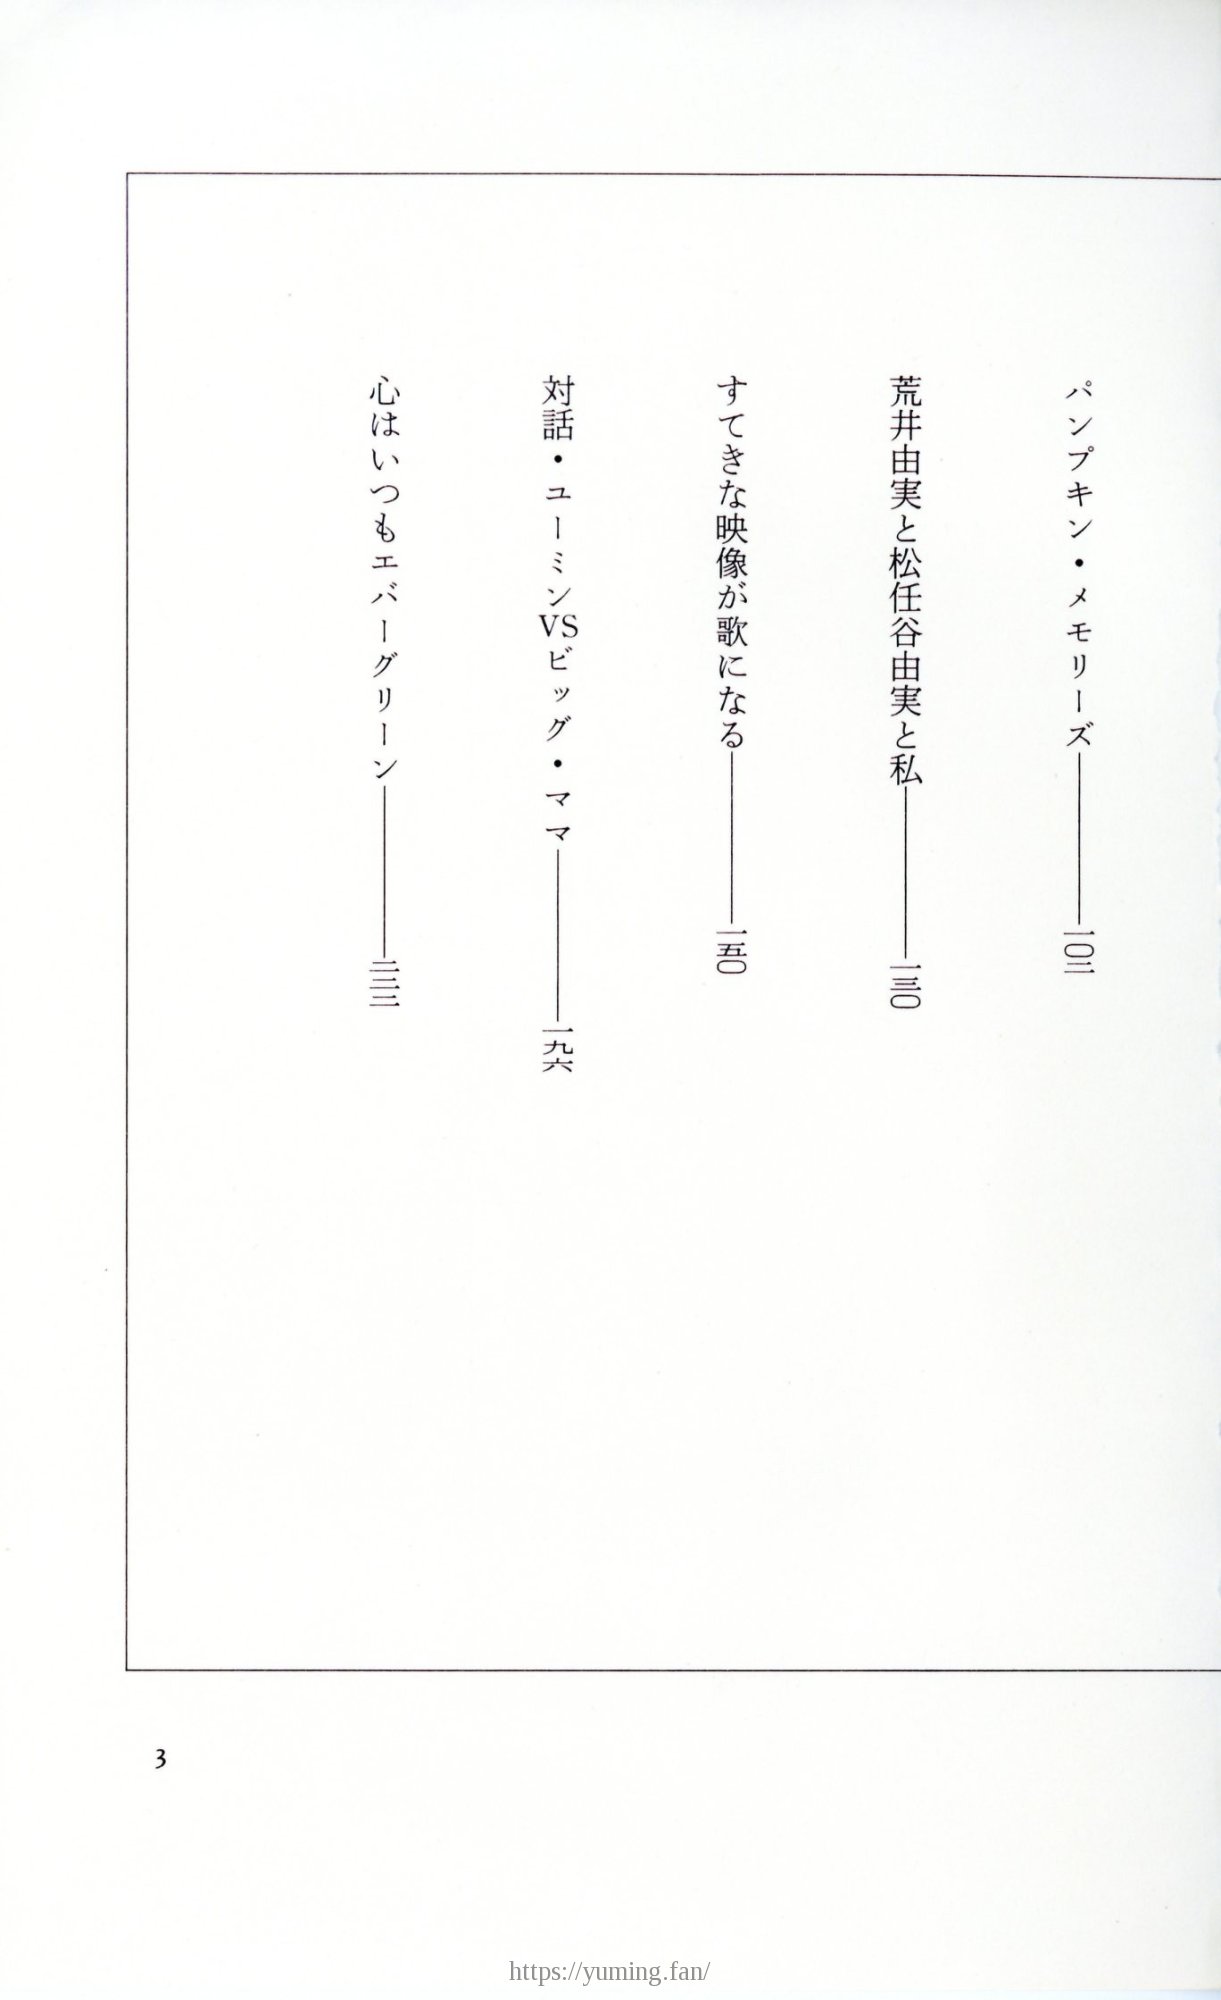 パンプキン・メモリーズ――一〇二
荒井由実と松任谷由実と私――一三〇
すてきな映像が歌になる――一五〇
対話・ユーミンVSビッグ・ママ――一九六
心はいつもエバーグリーン――二三二
3
https://yuming.fan/